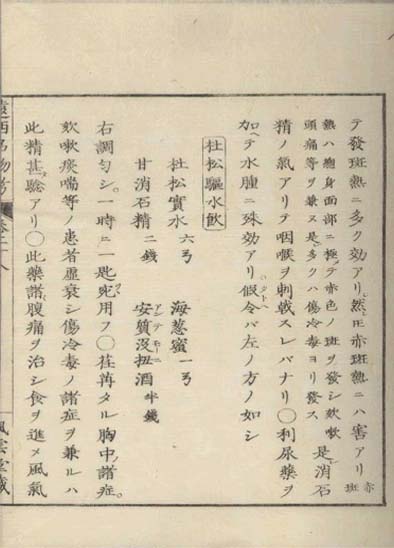 テ發斑熱ニ多ク効アリ然𪜈赤斑熱ニハ害アリ赤斑
熱ハ總身面部ニ極テ赤色ノ斑ヲ發シ欬嗽
頭痛等ヲ兼ヌ是多クハ傷冷毒ヨリ發ス
是消石
精ノ氣アリテ咽喉ヲ刺戟スレバナリ〇利尿藥ヲ
加ヘテ水腫ニ殊効アリ假令バ左ノ方ノ如シ
杜松驅水飲
杜松實水 六弓 海葱蜜 一弓
甘消石精 二錢 安質没扭酒 半錢
右調匀シ一時ニ一匙宛用フ〇荏苒タル胸中ノ諸症
欬嗽痰喘等ノ患者虚衰シ傷冷毒ノ諸症ヲ兼ルハ
此精甚タ驗アリ〇此藥諸腹痛ヲ治シ食ヲ進メ風氣